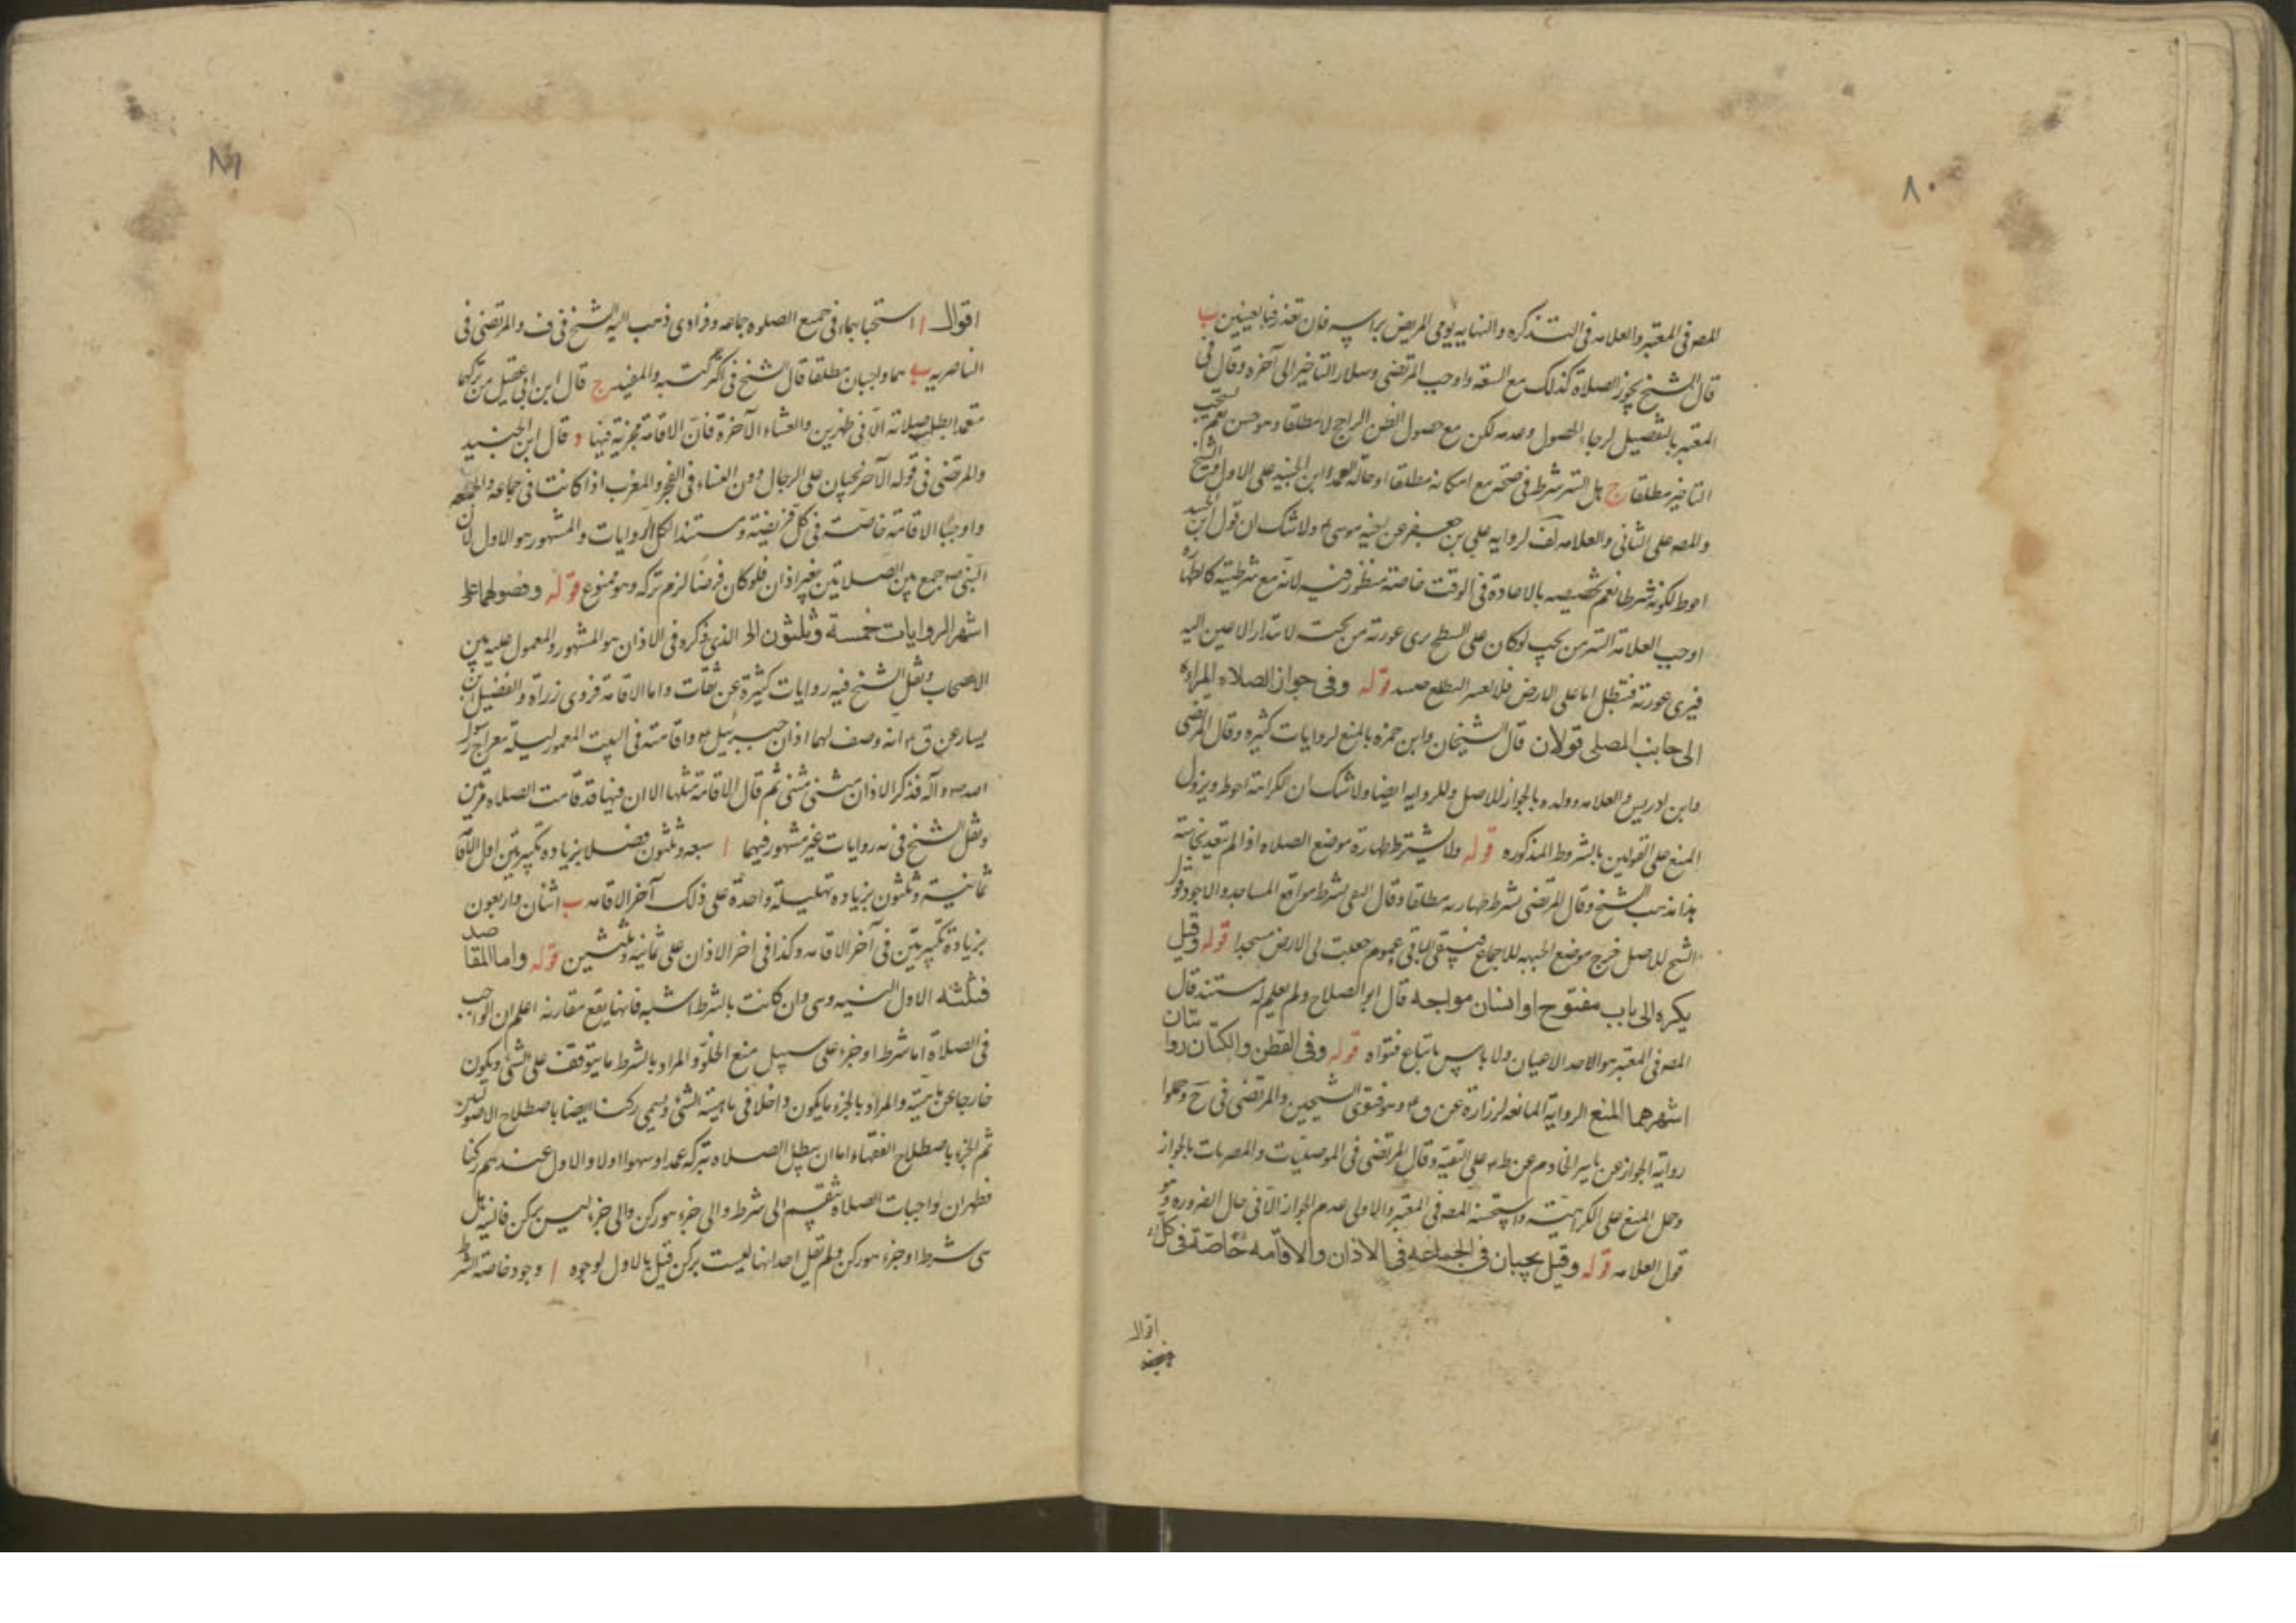 ٨٠
المص فى المعتبر والعلامه فى التذكره والنهايه يومى المريض براسه فان تعذر فبالعينين ب
قال الشيخ يجوز الصلاة كذلك مع السعة واوجب المرتضى وسلار التاخير الى آخره وقال فى
المعتبر بالتفصيل لرجاء الحصول وعدمه لكن مع حصول الظن الراجح لا مطلقا وهو حسن نعم يستحب
التاخير مطلقا ج هل الستر شرط فى صحته مع امكانه مطلقا او حالة العمد ابن الجنيد على الاول والشيخ
والمص على الثانى والعلامه لف لرواية على بن جعفر عن اخيه موسى ولا شك ان قول ابن الجنيد
احوط لكونه شرطا نعم تخصيصه بالاعادة فى الوقت خاصة منظور فيه لانه مع شرطيته كالطهاره
اوجب العلامة الستر من تحت لو كان على السطح يرى عورته من تحت لابتدار الاعين اليه
فيرى عورته فتبطل اما على الارض فلا لعسر التطلع قوله وفى جواز الصلاه المراه
الى جانب المصلى قولان قال الشيخان وابن حمزه بالمنع لروايات كثيره وقال المرتضى
وابن ادريس والعلامه وولده بالجواز للاصل وللروايه ايضا ولا شك ان الكراهة احوط ويزول
المنع على القولين بالشروط المذكوره قوله ولا يشترط طهارة موضع الصلاه اذا لم تتعد نجاسته
هذا مذهب الشيخ وقال المرتضى يشترط طهارته مطلقا وقال التقى يشترط مواقع المساجد والاجود قول
الشيخ للاصل خرج موضع الجبهه للاجماع فيبقى الباقى وعموم جعلت لى الارض مسجدا قوله وقيل
يكره الى باب مفتوح او انسان مواجه قال ابو الصلاح ولم يعلم له مستند قال
المص فى المعتبر هو الاحد الاعيان ولا باس باتباع فتواه قوله وفى القطن والكتان روايتان
اشهرهما المنع الرواية المانعه لزرارة عن ق وهو فتوى الشيخين والمرتضى فى وحملوا
رواية الجواز عن ياسر الخادم عن ط على التقية وقال المرتضى فى الموصليات والمصريات بالجواز
وحمل المنع على الكراهية واستحسنه المص فى المعتبر والاولى عدم الجواز الا فى حال الضروره وهو
قول العلامه قوله وقيل يجبان فى الجماعه فى الاذان والاقامه خاصة فى كل
اقوال
٨١
اقوال ا استحبابهما فى جميع الصلوه جماعه وفرادى ذهب اليه الشيخ فى ف والمرتضى فى
الناصريه ب هما واجبان مطلقا قال الشيخ فى اكثر كتبه والمفيد ج قال ابن ابى عقيل من تركهما
متعمدا بطل صلاته الا فى ظهرين والعشاء الآخرة فان الاقامة مجزية فيها د قال ابن الجنيد
والمرتضى فى قوله الآخر يجبان على الرجال دون النساء فى الفجر والمغرب اذا كانت فى جماعه والجمعه
واوجبا الاقامة خاصة فى كل فريضة ومستند الكل الروايات والمشهور هو الاول لان
النبى ص جمع بين الصلاتين بغير اذان فلو كان فرضا لزم تركه وهو ممنوع قوله وفصولهما على
اشهر الروايات خمسة وثلثون الخ الذى ذكره فى الاذان هو المشهور والمعمول عليه بين
الاصحاب ونقل الشيخ فيه روايات كثيرة عن ثقات واما الاقامة فروى زرارة والفضيل بن
يسار عن ق انه وصف لهما اذان جبرئيل واقامته فى البيت المعمور ليلة معراج رسول
الله ص وآله فذكر الاذان مثنى مثنى ثم قال الاقامة مثلها الا ان فيها قد قامت الصلاه مرتين
ونقل الشيخ فى يه روايات غير مشهوره فيهما ا سبعه وثلثون فصلا بزياده تكبيرتين اول الاقا
ثمانية وثلثون بزياده تهليلة واحدة على ذلك آخر الاقامه ب اثنان واربعون
بزيادة تكبيرتين فى آخر الاقامه وكذا فى اخر الاذان على ثمانيه وثلثين قوله واما المقاصد
فثلثه الاول النيه وهى وان كانت بالشرط اشبه فانها يقع مقارنه اعلم ان الواجب
فى الصلاة اما شرط او جزء على سبيل منع الخلو والمراد بالشرط ما يتوقف على الشئ ويكون
خارجا عن ماهيته والمراد بالجزء ما يكون داخلا فى ماهية الشئ ويسمى ركنا ايضا باصطلاح الاصوليين
ثم الجزء باصطلاح الفقهاء اما ان يبطل الصلاه تركه عمدا وسهوا اولا والاول عندهم ركنا
فظهر ان واجبات الصلاة ينقسم الى شرط والى جزء هو ركن والى جزء ليس بركن فالنيه هل
هى شرط او جزء هو ركن ولم يقل احد انها ليست بركن قيل بالاول لوجوه ا وجود خاصة الشرط